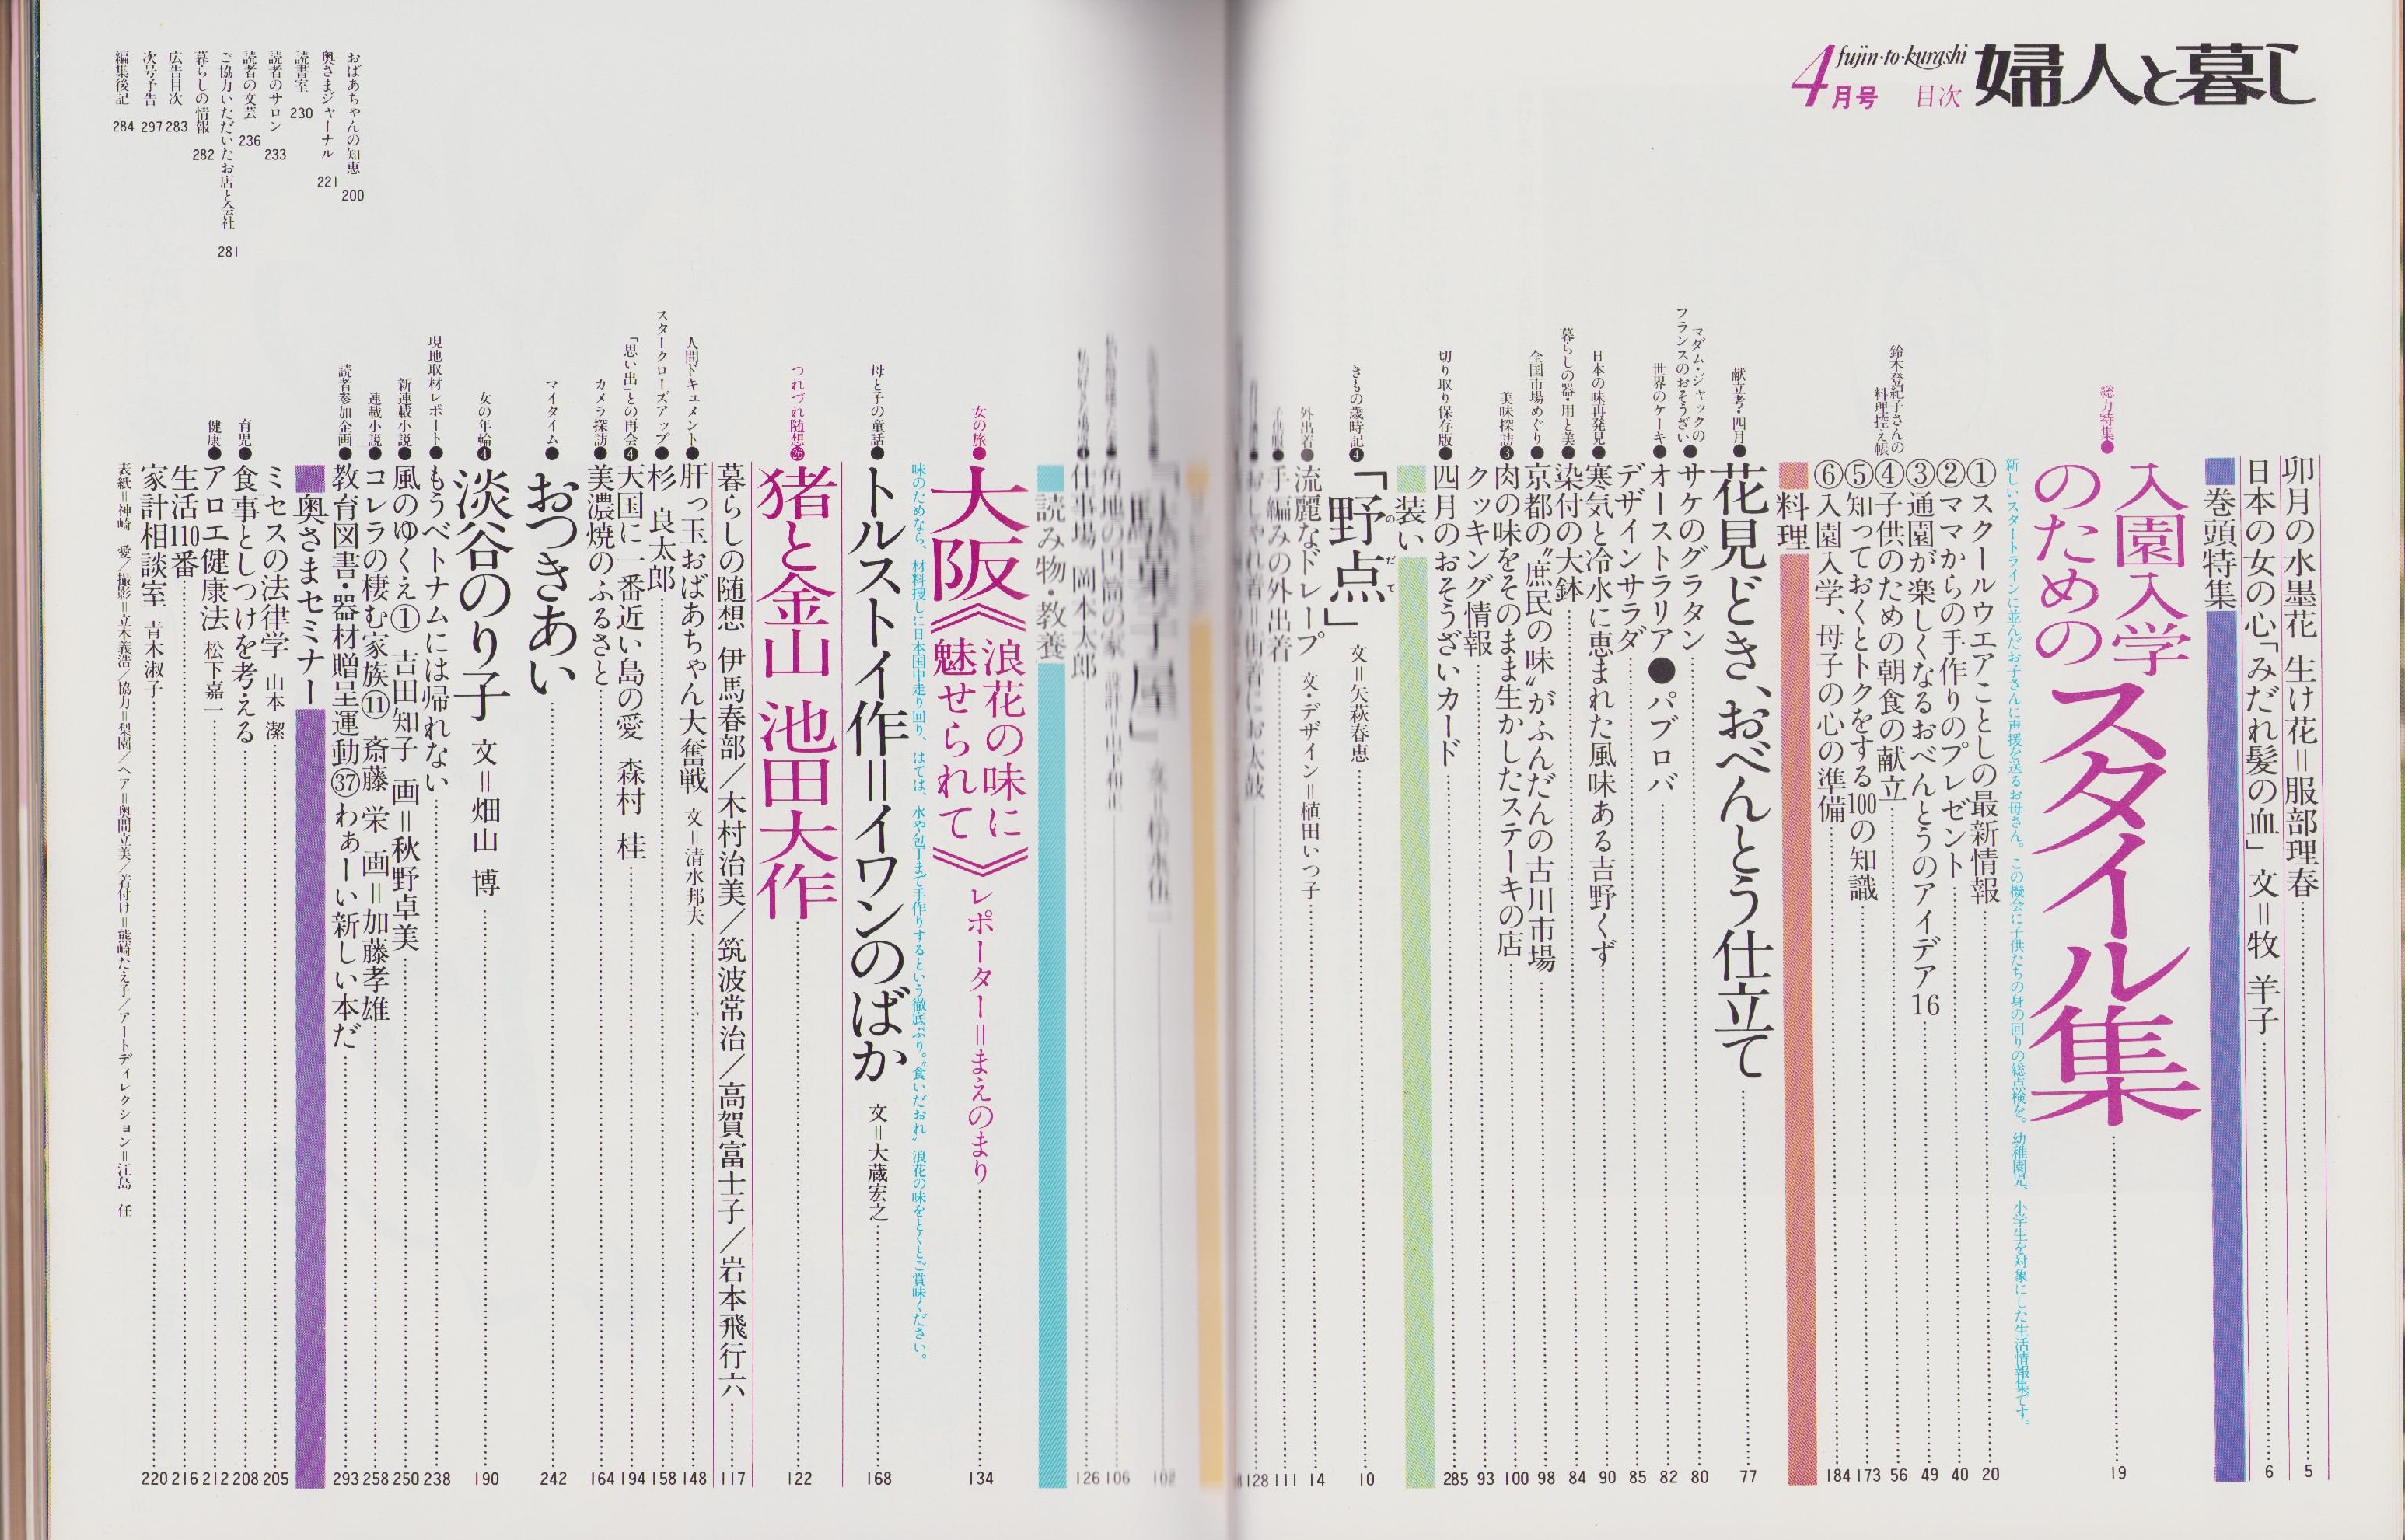 婦人と暮し
fujin·to·kurashi
4月号 目次
卯月の水墨花 生け花＝服部理春 5
日本の女の心「みだれ髪の血」 文＝牧 羊子 6
巻頭特集
総力特集●
入園入学のためのスタイル集 19
新しいスタートラインに並んだお子さんに声援を送るお母さん。この機会に子供たちの身の回りの総点検を。幼稚園児、小学生を対象にした生活情報集です。
①スクールウエアことしの最新情報 20
②ママからの手作りのプレゼント 40
③通園が楽しくなるおべんとうのアイデア16 49
鈴木登紀子さんの料理控え帳
④子供のための朝食の献立 56
⑤知っておくとトクをする100の知識 173
⑥入園入学、母子の心の準備 184
料理
献立考・四月●花見どき、おべんとう仕立て 77
マダム・ジャックのフランスのおそうざい●サケのグラタン 80
世界のケーキ●オーストラリア●パブロバ 82
デザインサラダ 85
日本の味再発見●寒気と冷水に恵まれた風味ある吉野くず 90
暮らしの器・用と美●染付の大鉢 84
全国市場めぐり●京都の〝庶民の味〟がふんだんの古川市場 98
美味探訪❸肉の味をそのまま生かしたステーキの店 100
クッキング情報 93
切り取り保存版●四月のおそうざいカード 285
装い
きもの歳時記❹「野点」 文＝矢萩春恵 10
のだて
外出着●流麗なドレープ 文・デザイン＝植田いつ子 14
子供服●手編みの外出着 111
おしゃれ着＝街着にお太鼓 128
102
角地の円筒の家 設計＝山下和正 106
仕事場 岡本太郎 126
読み物・教養
女の旅●大阪《浪花の味に魅せられて》レポーター＝まえのまり 134
味のためなら、材料捜しに日本国中走り回り、はては、水や包丁まで手作りするという徹底ぶり。〝食いだおれ〟浪花の味をとくとご賞味ください。
母と子の童話●トルストイ作＝イワンのばか 文＝大蔵宏之 168
つれづれ随想㉖猪と金山 池田大作 122
暮らしの随想 伊馬春部／木村治美／筑波常治／高賀富士子／岩本飛行六 117
人間ドキュメント●肝っ玉おばあちゃん大奮戦 文＝清水邦夫 148
スタークローズアップ●杉 良太郎 158
「思い出」との再会❹天国に一番近い島の愛 森村 桂 194
カメラ探訪●美濃焼のふるさと 164
マイタイム●おつきあい 242
女の年輪❹淡谷のり子 文＝畑山 博 190
現地取材レポート●もうベトナムには帰れない 238
新連載小説●風のゆくえ① 吉田知子 画＝秋野卓美 250
連載小説●コレラの棲む家族⑪ 斎藤 栄 画＝加藤孝雄 258
読者参加企画●教育図書・器材贈呈運動㊲わぁーい新しい本だ 293
奥さまセミナー
ミセスの法律学 山本 潔 205
育児●食事としつけを考える 208
健康●アロエ健康法 松下嘉一 212
生活110番 216
家計相談室 青木淑子 220
表紙＝神崎 愛／撮影＝立木義浩／協力＝梨園／ヘア＝奥間立美／着付け＝熊崎たえ子／アートディレクション＝江島 任
おばあちゃんの知恵 200
奥さまジャーナル 221
読書室 230
読者のサロン 233
読者の文芸 236
ご協力いただいたお店と会社 281
暮らしの情報 282
広告目次 283
次号予告 297
編集後記 284